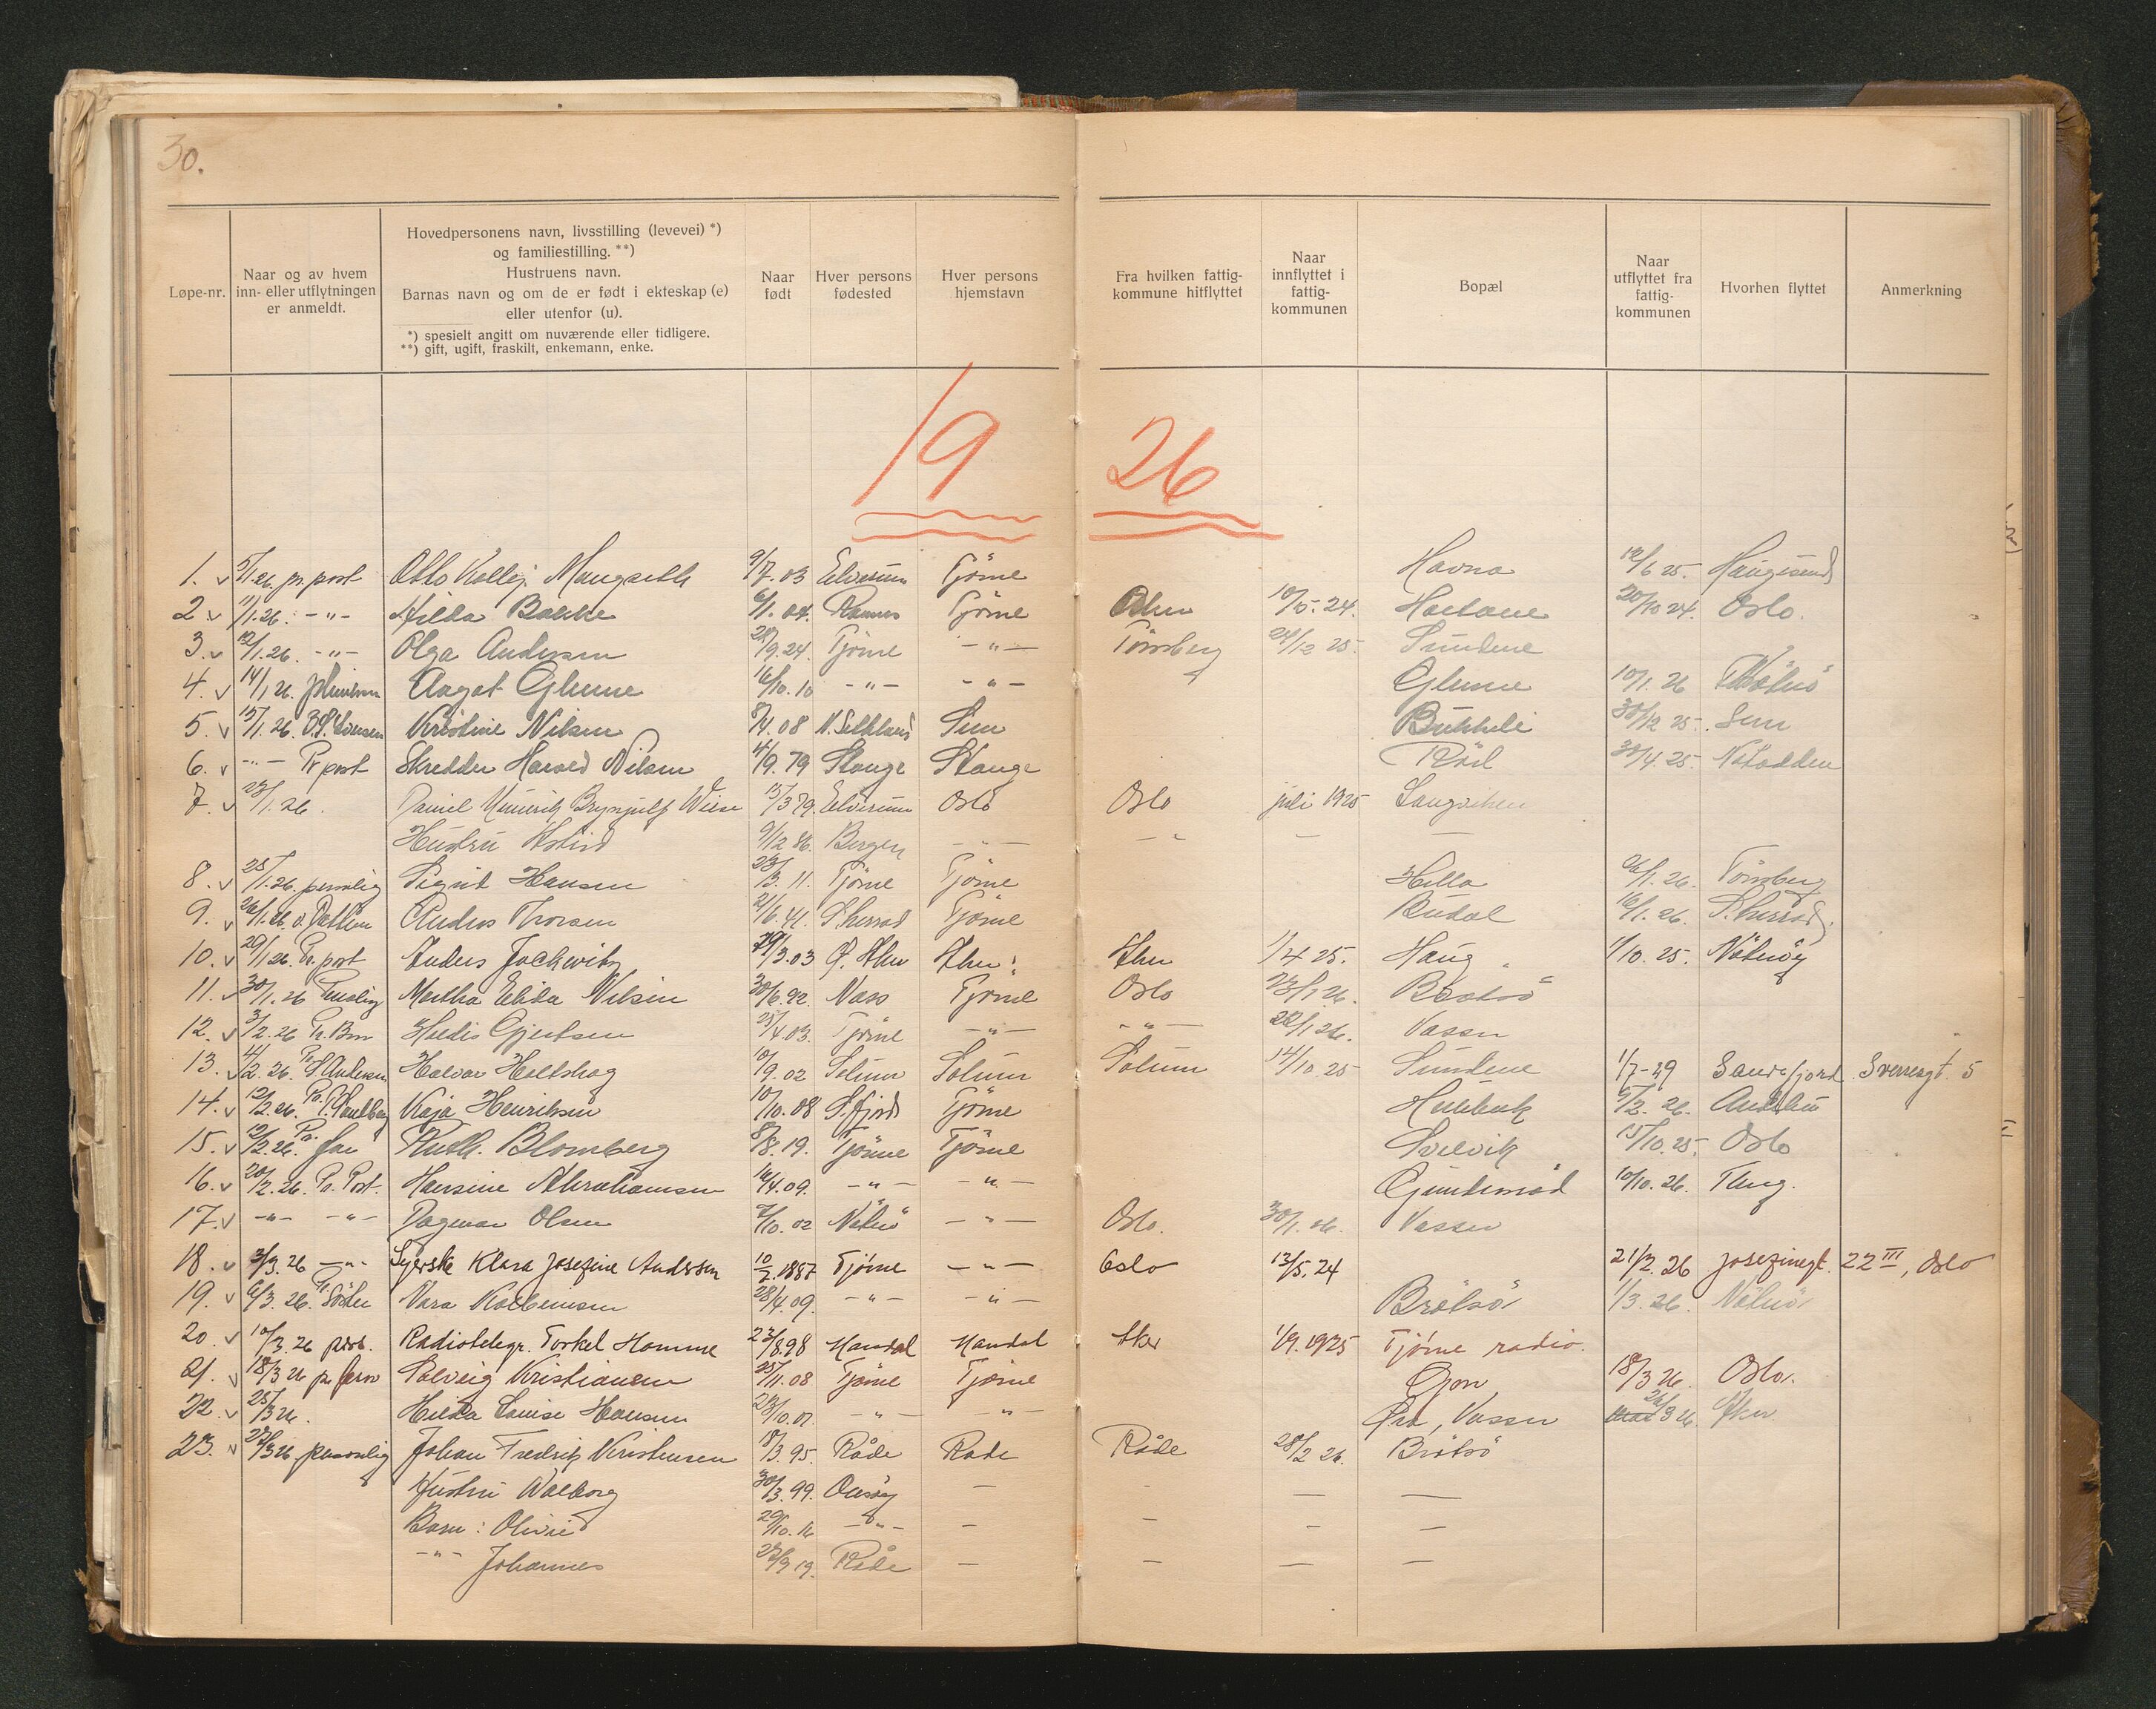 30.
Løpe-nr.
Naar og av hvem
inn- eller utflytningen
er anmeldt.
Hovedpersonens navn, livsstilling (levevei) *)
og familiestilling. **)
Hustruens navn.
Barnas navn og om de er født i ekteskap (e)
eller utenfor (u).
*) spesielt angitt om nuværende eller tidligere.
**) gift, ugift, fraskilt, enkemann, enke.
Naar
født
Hver persons
fødested
Hver persons
hjemstavn
Fra hvilken fattig-
kommune hitflyttet
Naar
innflyttet i
fattig-
kommunen
Bopæl
Naar
utflyttet fra
fattig-
kommunen
Hvorhen flyttet
Anmerkning
19 26
1. v 5/1.26. pr. post Otto 9/7.03 Elverum Tjöme Havna 12/6 25. Haugesund
2 v 11/1.26. -"- Hilda Bakke 6/1.04. Ramnes Tjöme Aker 10/5.24. 20/10 24. Oslo.
3. v 12/1.26. -"- Olga Andersen 28/9.24. Tjöme -"- Tönsberg 28/12 25. Sundene
4. v 14/1 26. Aagot Glenne 16/10.10 -"- -"- Glenne 10/1.26 Nötterö
5. v 15/1.26. Kristine Nilsen 8/4.08 Sem 30/12 25. Sem
6. v -"- Pr post Skredder Harald Nilsen 4/9.79 Stange Stange Röd 30/4.25. Notodden
7. v 23/1.26. Daniel Brynjulf Wiese 15/3 79. Elverum Oslo Oslo juli 1925 Langviken
Hustru Astrid 9/12 86. Bergen -"- -"- - -
8. v 25/1.26. personlig Sigrid Hansen 23/3.11. Tjöme Tjöme Hella 26/1.26. Tönsberg
9. v 26/1.26. Anders Thorsen 21/6.41. S.herred Tjöme Budal 16/1.26. S.herred.
10. v 29/1 26. Pr. post Anders Jackwitz 29/3.03 Ö. Aker Aker Aker 1/4 25. Haug 1/10.25. Nötteröy
11. v 30/1.26 Martha Elida Nilsen 30/6.92. Næs Tjöme Oslo 23/1 26. Brötsö
12. v 3/2.26 Pr. Brev Hædis Gjertsen 25/4.03. Tjöme -"- -"- 22/1 26. Vasser
13. v 4/2.26. Pr. S. Andersen Halvor Holtskog 10/9.02 Solum Solum Solum 14/10 25 Sundene 1/7-29 Sandefjord Sverresgt. 5
14. v 12/2.26. Pr. Kaja Henriksen 10/10.08 S.fjord Tjöme 9/2.26. Andebu
15. v 12/2.26. Pr. far Ruth Blomberg 8/8.19. Tjöme Tjöme Svelvik 15/10.25. Oslo
16. v 20/2.26. Pr. Post. Hansine Abrahamsen 16/4.09. -"- -"- 10/10.26. Tbrg.
17. v -"- -"- Dagmar Olsen 7/10.02 Nötterö -"- Oslo. 30/1.26. Vasser
18. v 3/3.26 -"- Syerske Klara Josefine Andersen 10/7.1887 Tjöme -"- Oslo 13/5.24 21/2.26 Josefinegt. 22 III, Oslo
19. v 6/3.26. Pr. Söster Vara Kolbeinsen 28/4.09. -"- -"- Brötsö 1/3.26. Nötterö
20. v 10/3.26 pers. Radiotelegr. Torkel Homme 23/8.98 Mandal Mandal Aker 1/9.1925 Tjöme radio.
21. v 18/3 26 pr. Solveig Kristiansen 25/11.08 Tjöme Tjöme Gjon 18/3 26. Oslo.
22. v 25/3 26. Hilda Louise Hansen 23/10.07. -"- -"- Öra, Vasser 26/3 26. Aker
23. v 27/3 26. personlig Johan Fredrik Kristensen 18/3.95. Råde Rade Råde 28/2 26. Brötsö
Hustru Walborg 30/3.99. Onsöy - - - -
Barn: Olivie 29/10.16 -"- - - - -
-"- Johannes 27/9 19. Råde - - - -